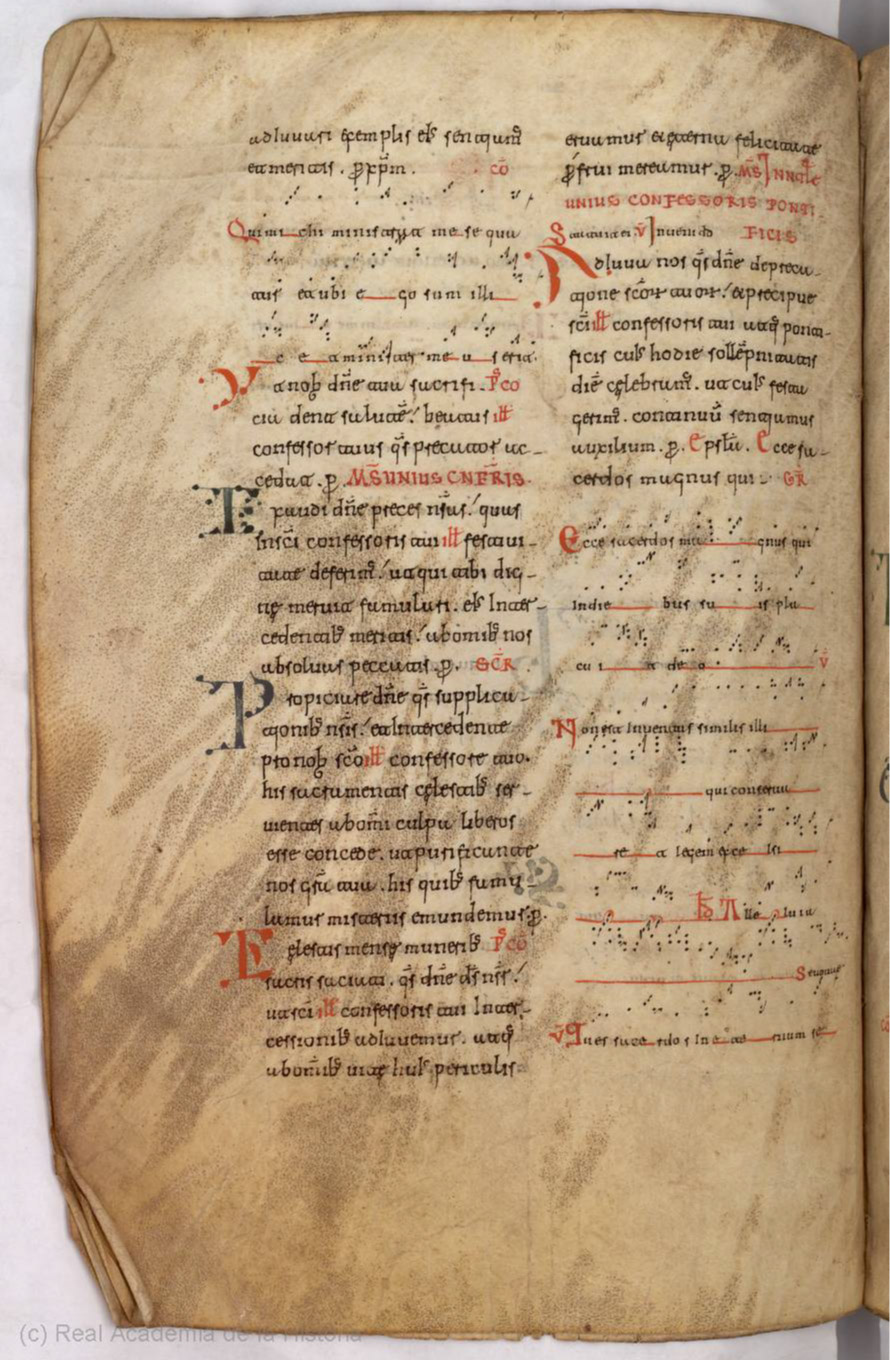 adiuuari exemplis et sentiam̄
et meritis . ꝑ xp̄m . CŌ
Qui mi chi ministrat me se qua
tur et ubi e go sum illi
c e t minister me us erit
Vt a nob̄ dn̄e tua sacrifi . P̄CO
cia dent salutē beatus ill̄
confessor tuus qs̄ precator ac
cedat . ꝑ . MS̄ UNIUS CNFR̄IS .
Exaudi dn̄e preces nr̄as quas
in sc̄i confessoris tui ill̄ festiui
tate deferim̄ ut qui tibi dig
ne meruit famulari . eius Inter
cedentib̄ meritis ab omib̄ nos
absolue peccatis . ꝑ . SCR̄
Propiciare dn̄e qs̄ supplica
tionib̄ nr̄is et Intercedente
pro nob̄ sc̄o ill̄ confessore tuo .
his sacramentis celestib̄ ser
uientes ab omi culpa liberos
esse concede . ut purificante
nos gr̄a tua . his quib̄ famu
lamur misteriis emundemur . ꝑ .
Celestis mense munerib̄ P̄CO
sacris saciati . qs̄ dn̄e ds̄ nr̄
ut sc̄i ill̄ confessoris tui Inter
cessionib̄ adiuuemur . utq̄
ab omib̄ uite huius periculis
eruamur et eterna felicitate
ꝑfrui mereamur . ꝑ . MS̄ IN NATLE
UNIUS CONFESSORIS PONTI
Statuit ei V̄ Inueni dd FICIS
Adiuua nos qs̄ dn̄e depreca
tione scōr tuor et precipue
sc̄i ill̄ confessoris tui atq̄ ponti
ficis cuius hodie sollēpnitatis
diē celebram̄ . ut cuius festa
gerim̄ . continuū sentiamus
auxilium . ꝑ . Epsl̄a . Ecce sa
cerdos magnus qui GR̄
Ecce sacerdos ma gnus qui
In die bus su is pla
cu i t de o V̄
Non est Inuentus similis illi
qui conserua
re t legem exce lsi
Alle luia
V̄ Tu es sace rdo s In e te rnum se